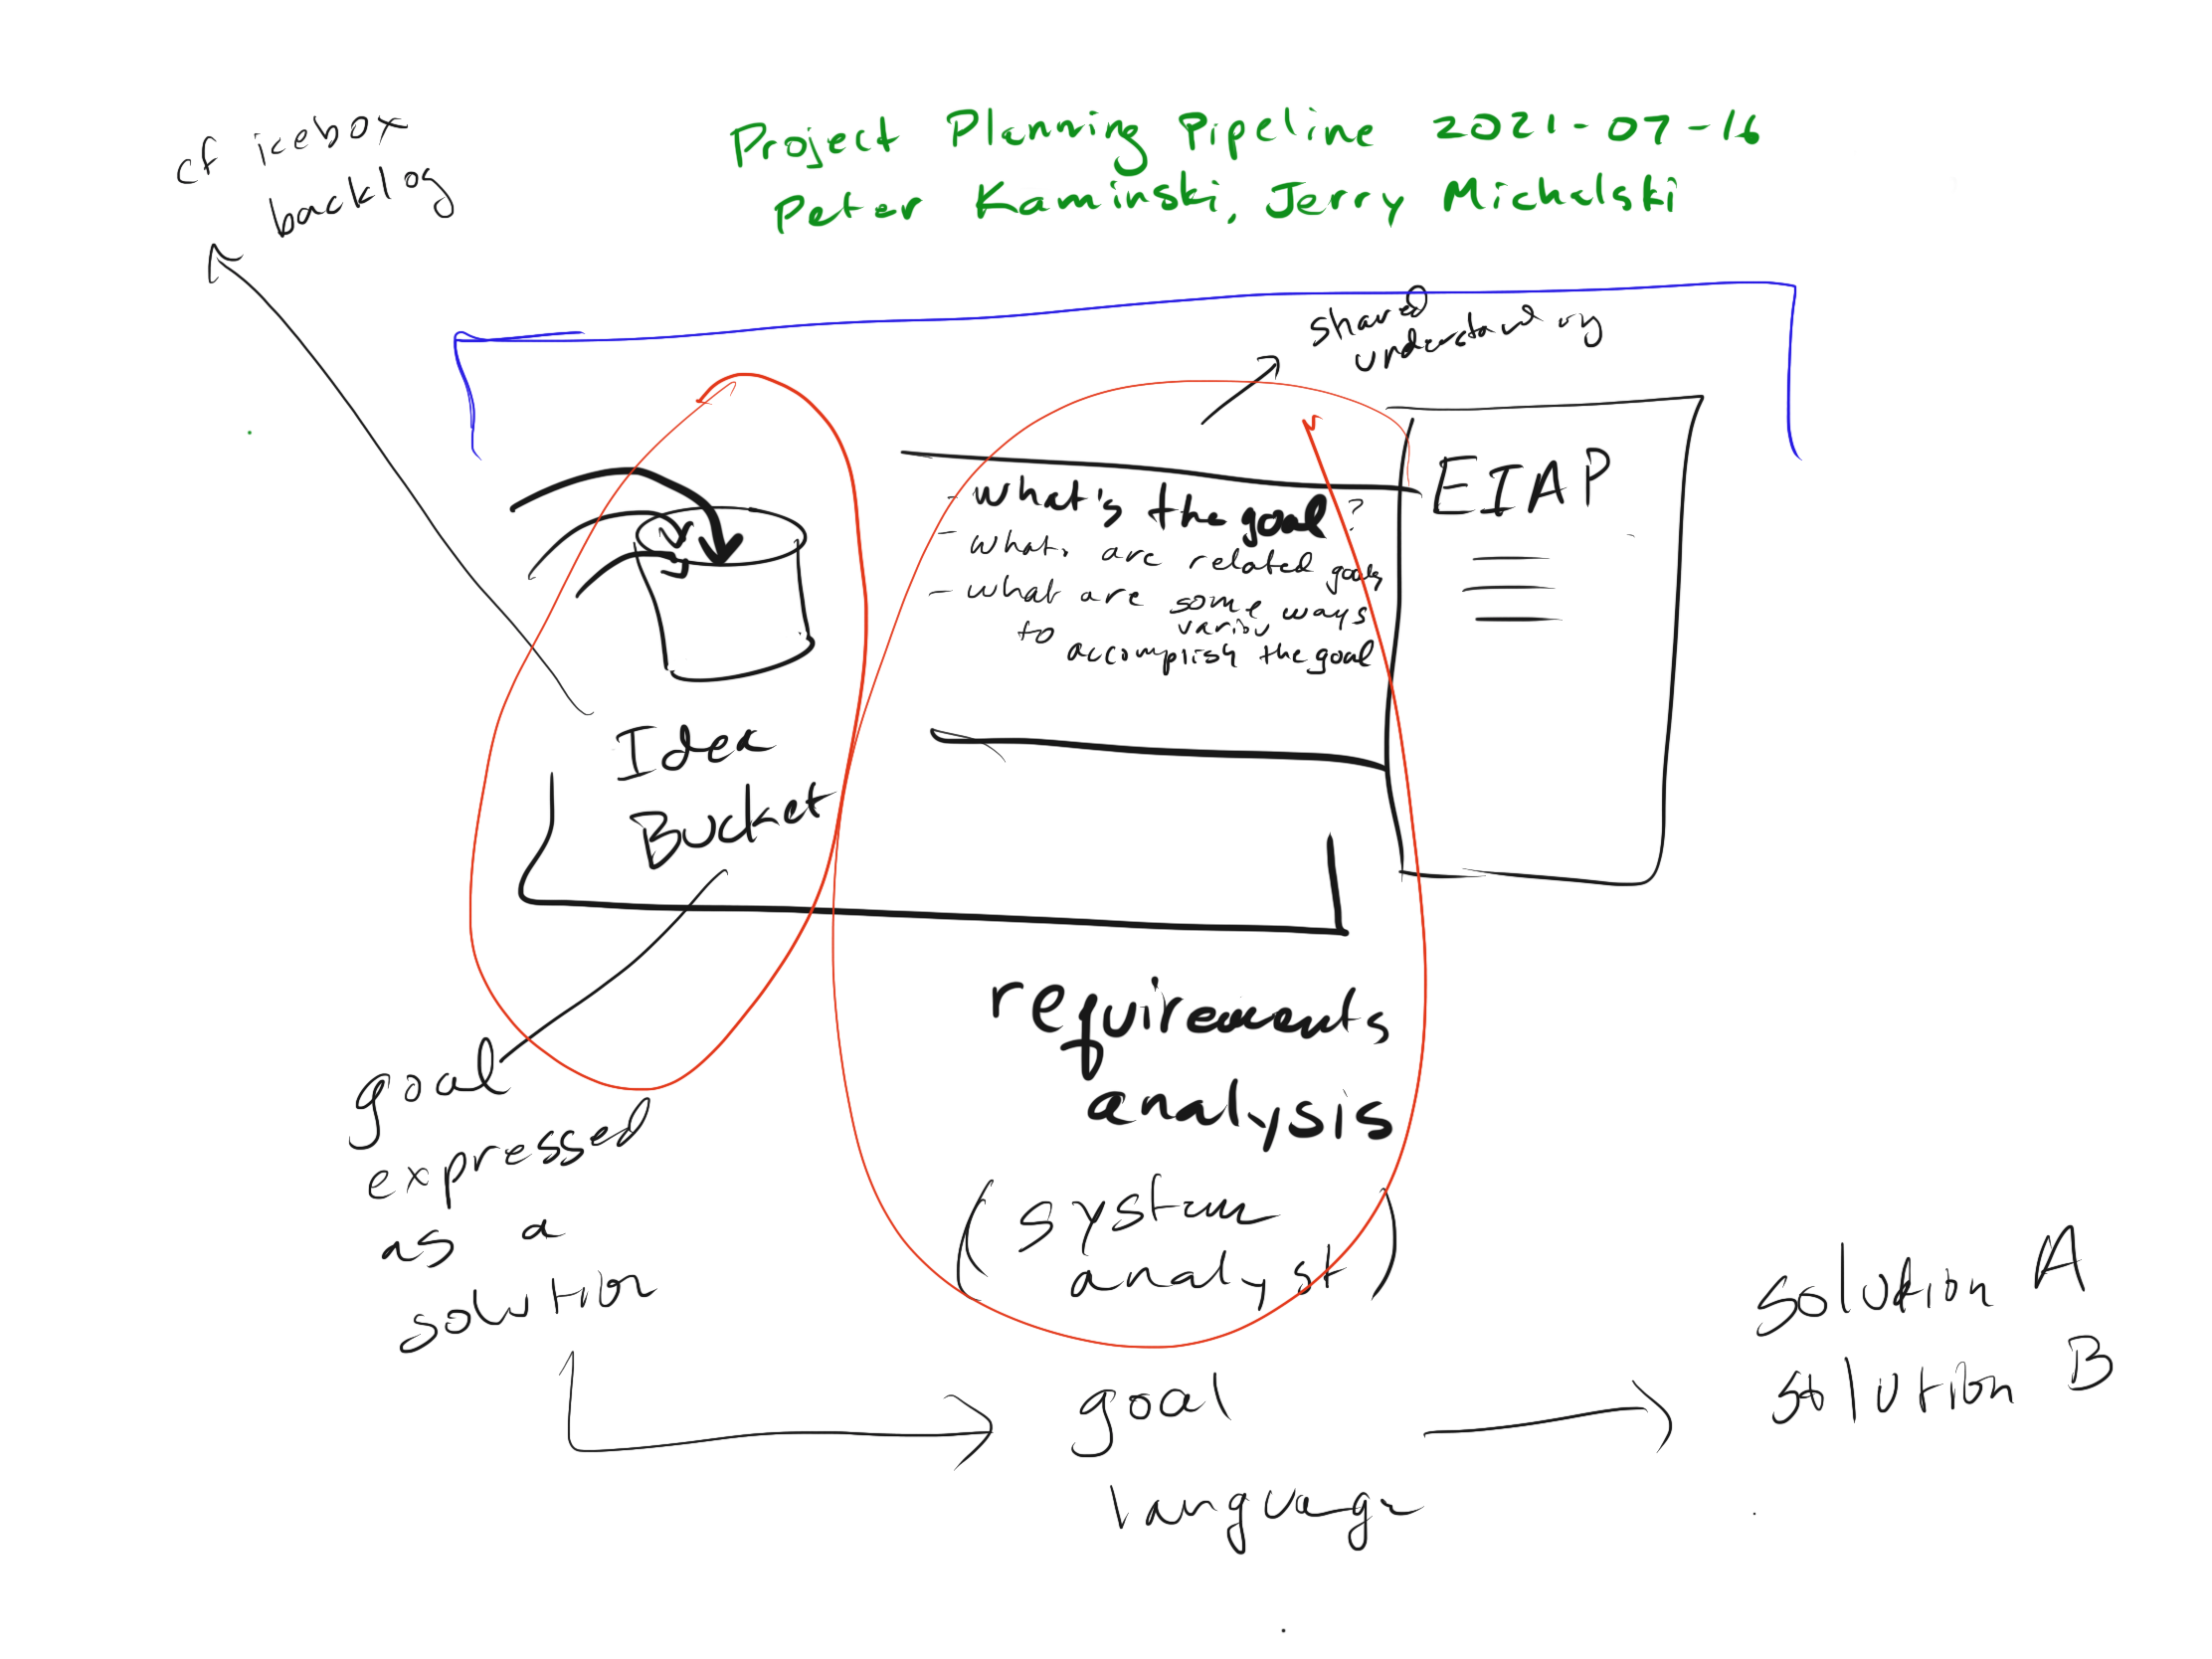 Project Planning Pipeline 2021-07-16
Peter Kaminski, Jerry Michalski
cf icebox
backlog
shared
understanding
- what's the goal?
- what are related goals
- what are some ways
various
to accomplish the goal
EIAP
Idea
Bucket
requirements
analysis
(system
analyst)
goal
expressed
as a
solution
goal
language
solution A
solution B